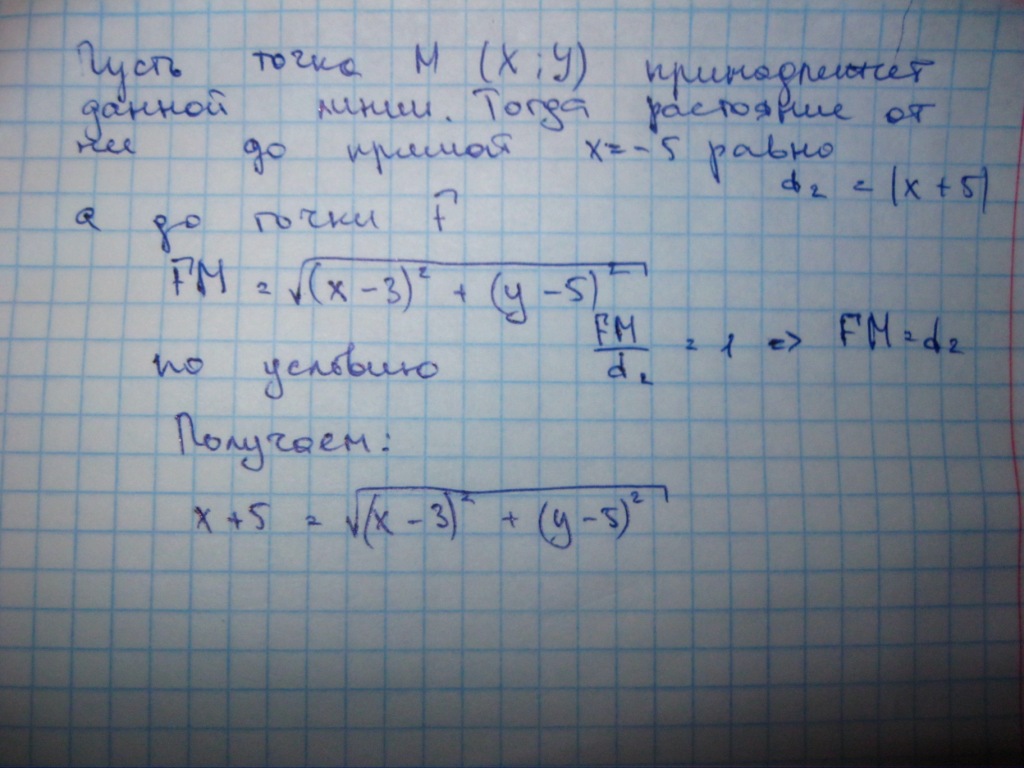 Пусть точка M (X ; Y) принадлежит
данной линии. Тогда растояние от
нее до прямой x = -5 равно
d₂ = |x + 5|
а до точки F
FM = √((x - 3)² + (y - 5)²)
по условию FM/d₂ = 1 => FM = d₂
Получаем:
x + 5 = √((x - 3)² + (y - 5)²)